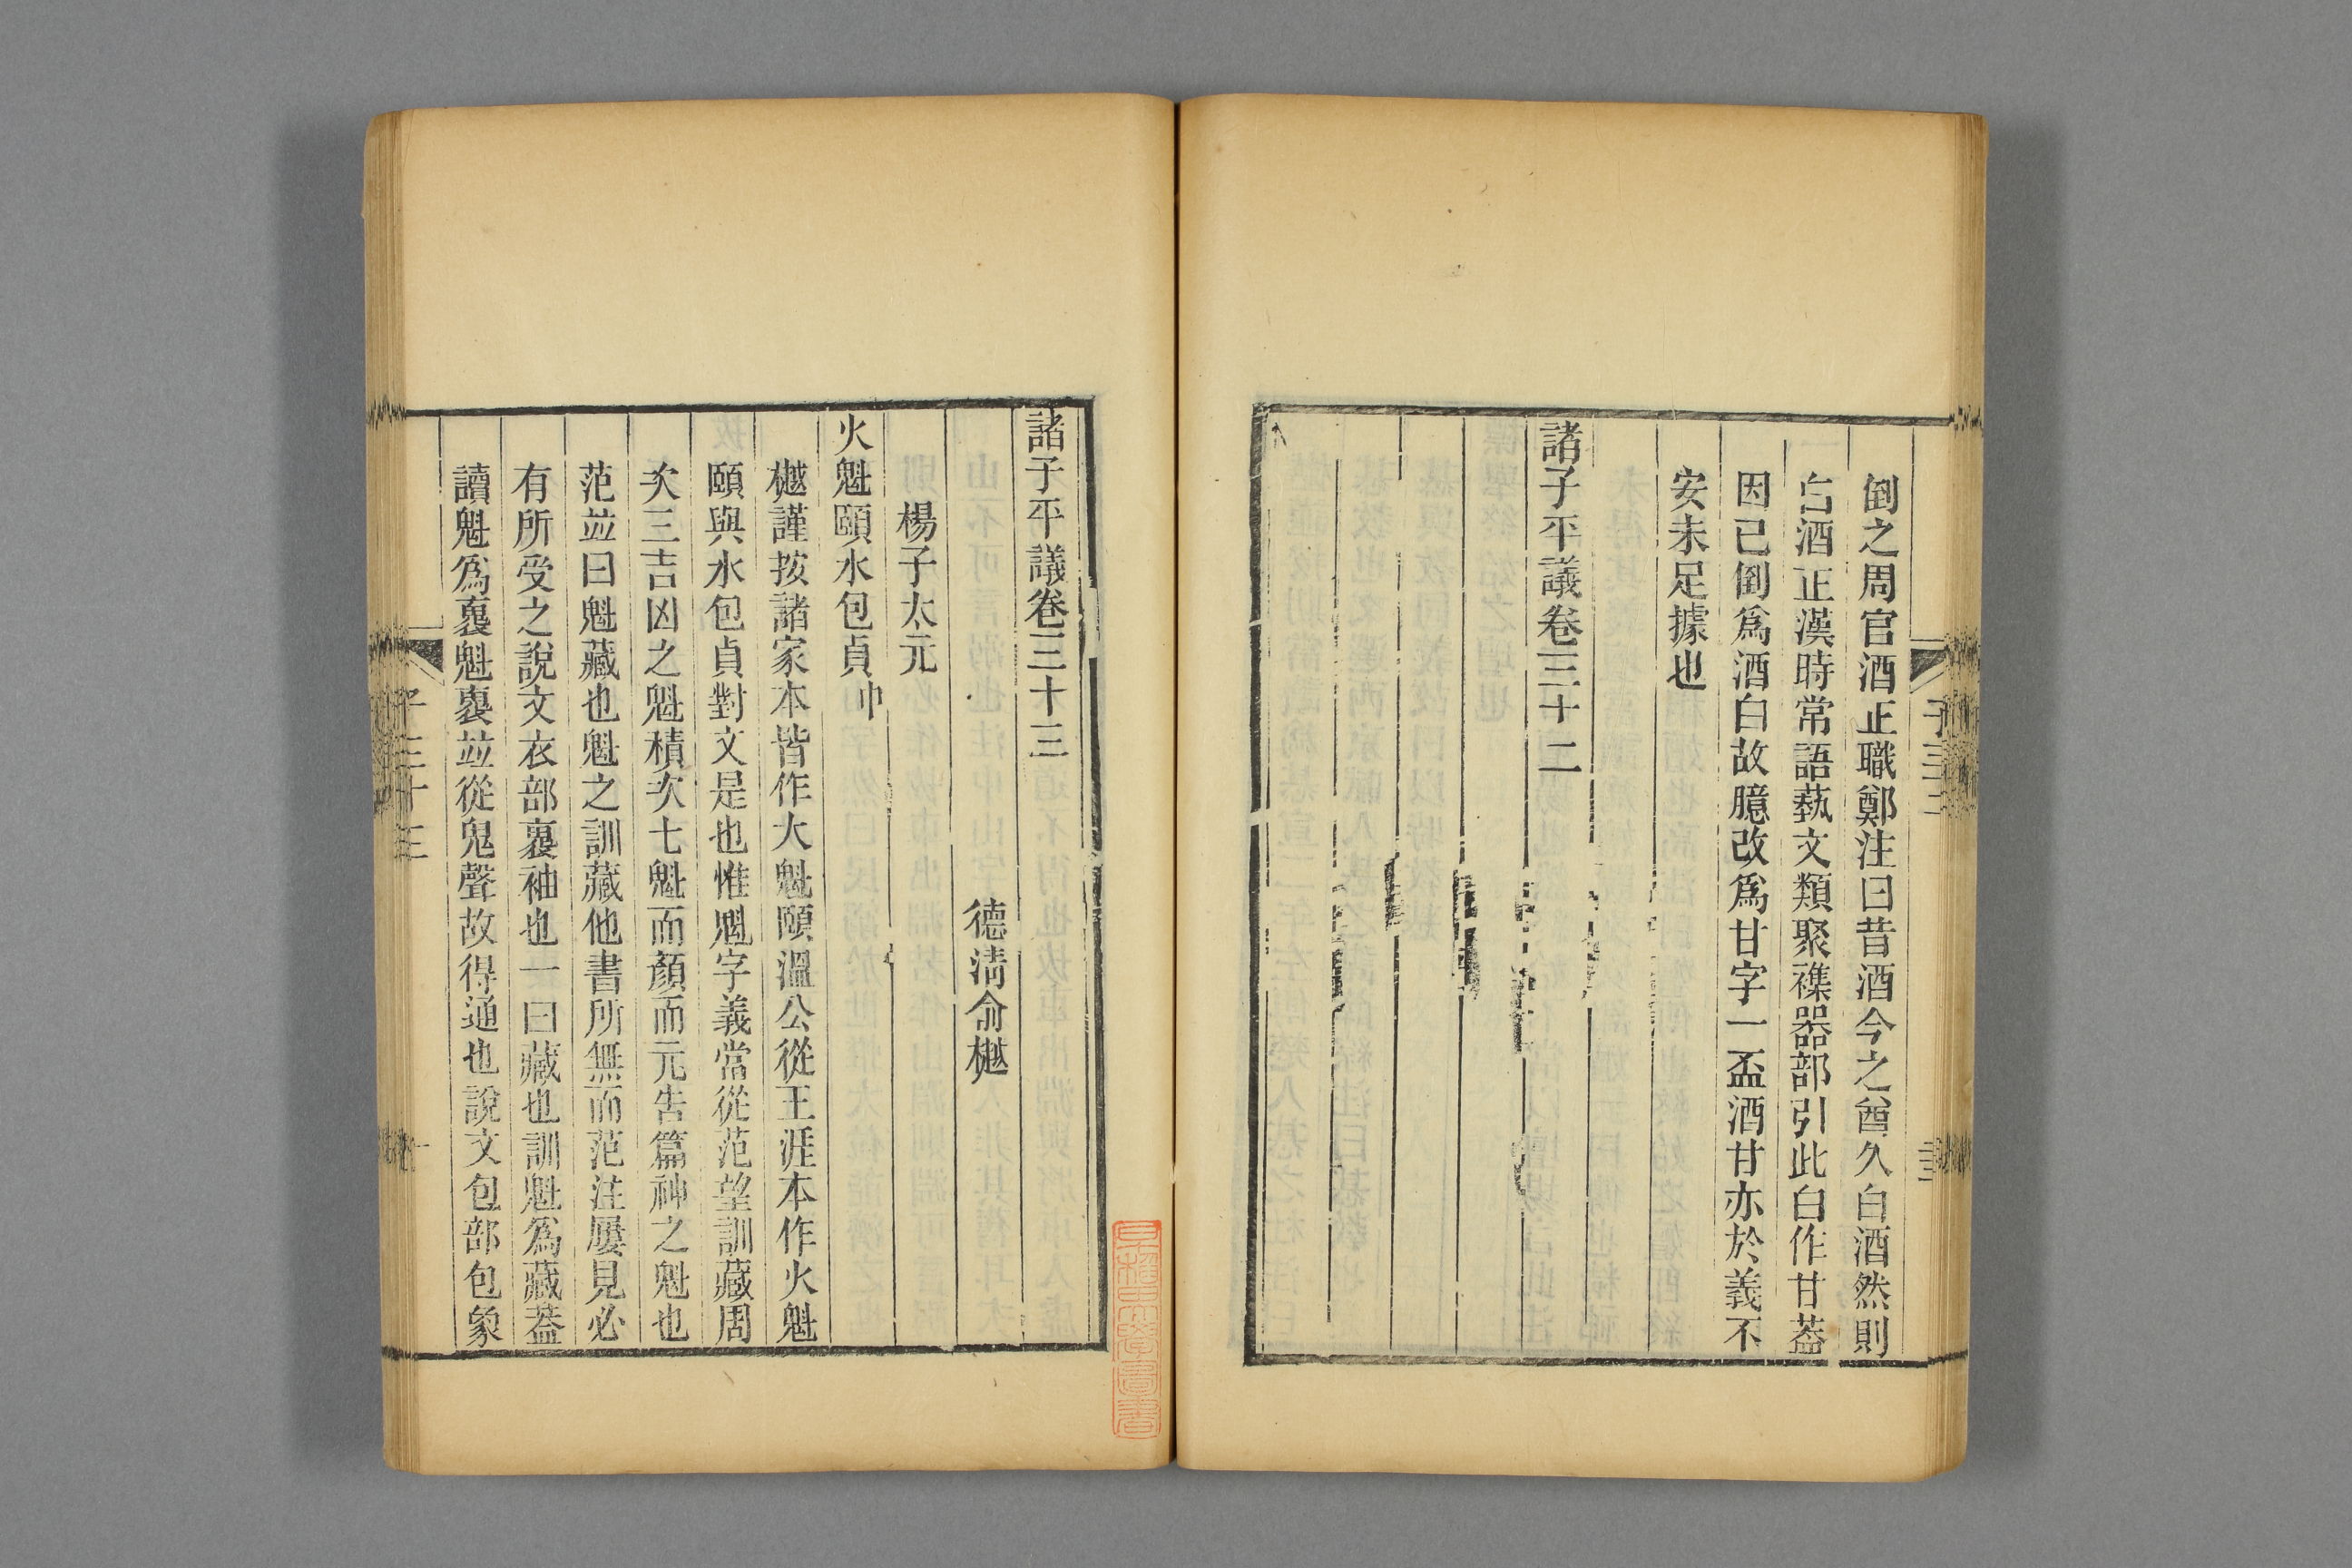 倒之周官酒正職鄭注曰昔酒今之酋久白酒然則
白酒正漢時常語蓺文類聚襍器部引此白作甘葢
因已倒爲酒白故臆改爲甘字一盃酒甘亦於義不
安未足據也
諸子平議卷三十二
諸子平議卷三十三
德淸俞樾
楊子太元
火魁頤水包貞中
樾謹按諸家本皆作大魁頤溫公從王涯本作火魁
頤與水包貞對文是也惟魁字義當從范望訓藏周
次三吉凶之魁積次七魁而顏而元吿篇神之魁也
范竝曰魁藏也魁之訓藏他書所無而范注屢見必
有所受之說文衣部褱袖也一曰藏也訓魁爲藏葢
讀魁爲褱魁褱竝從鬼聲故得通也說文包部包象
子三十三